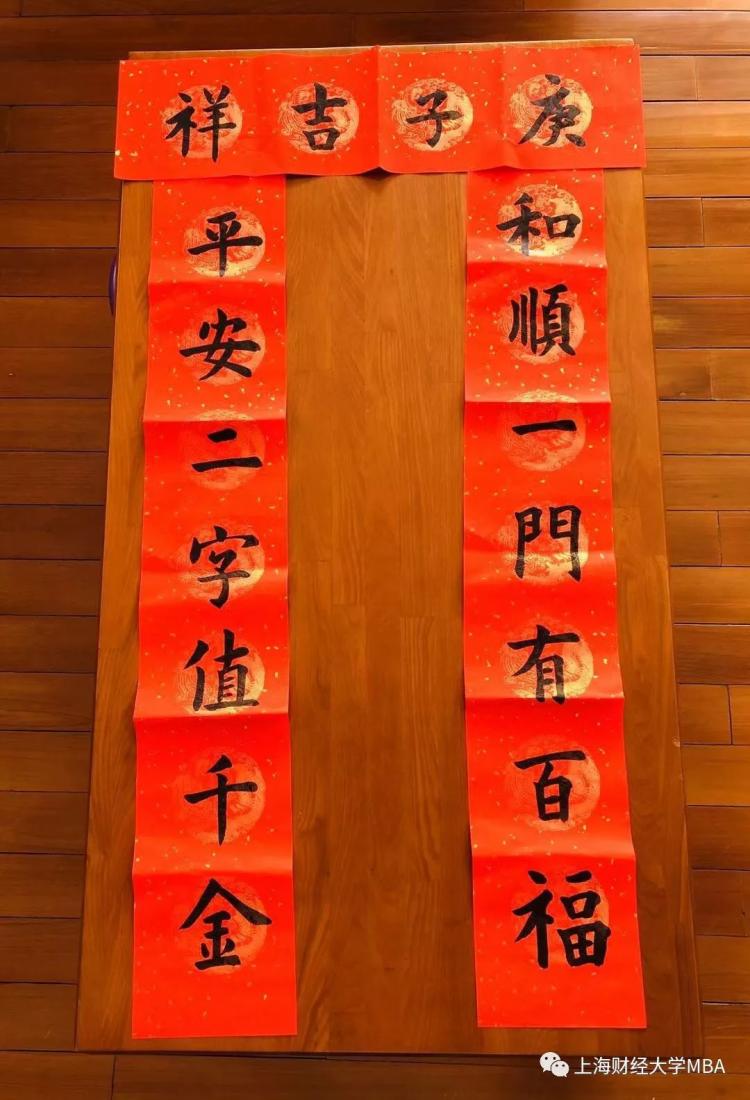 庚子吉祥
和順一門有百福
平安二字值千金
上海财经大学MBA